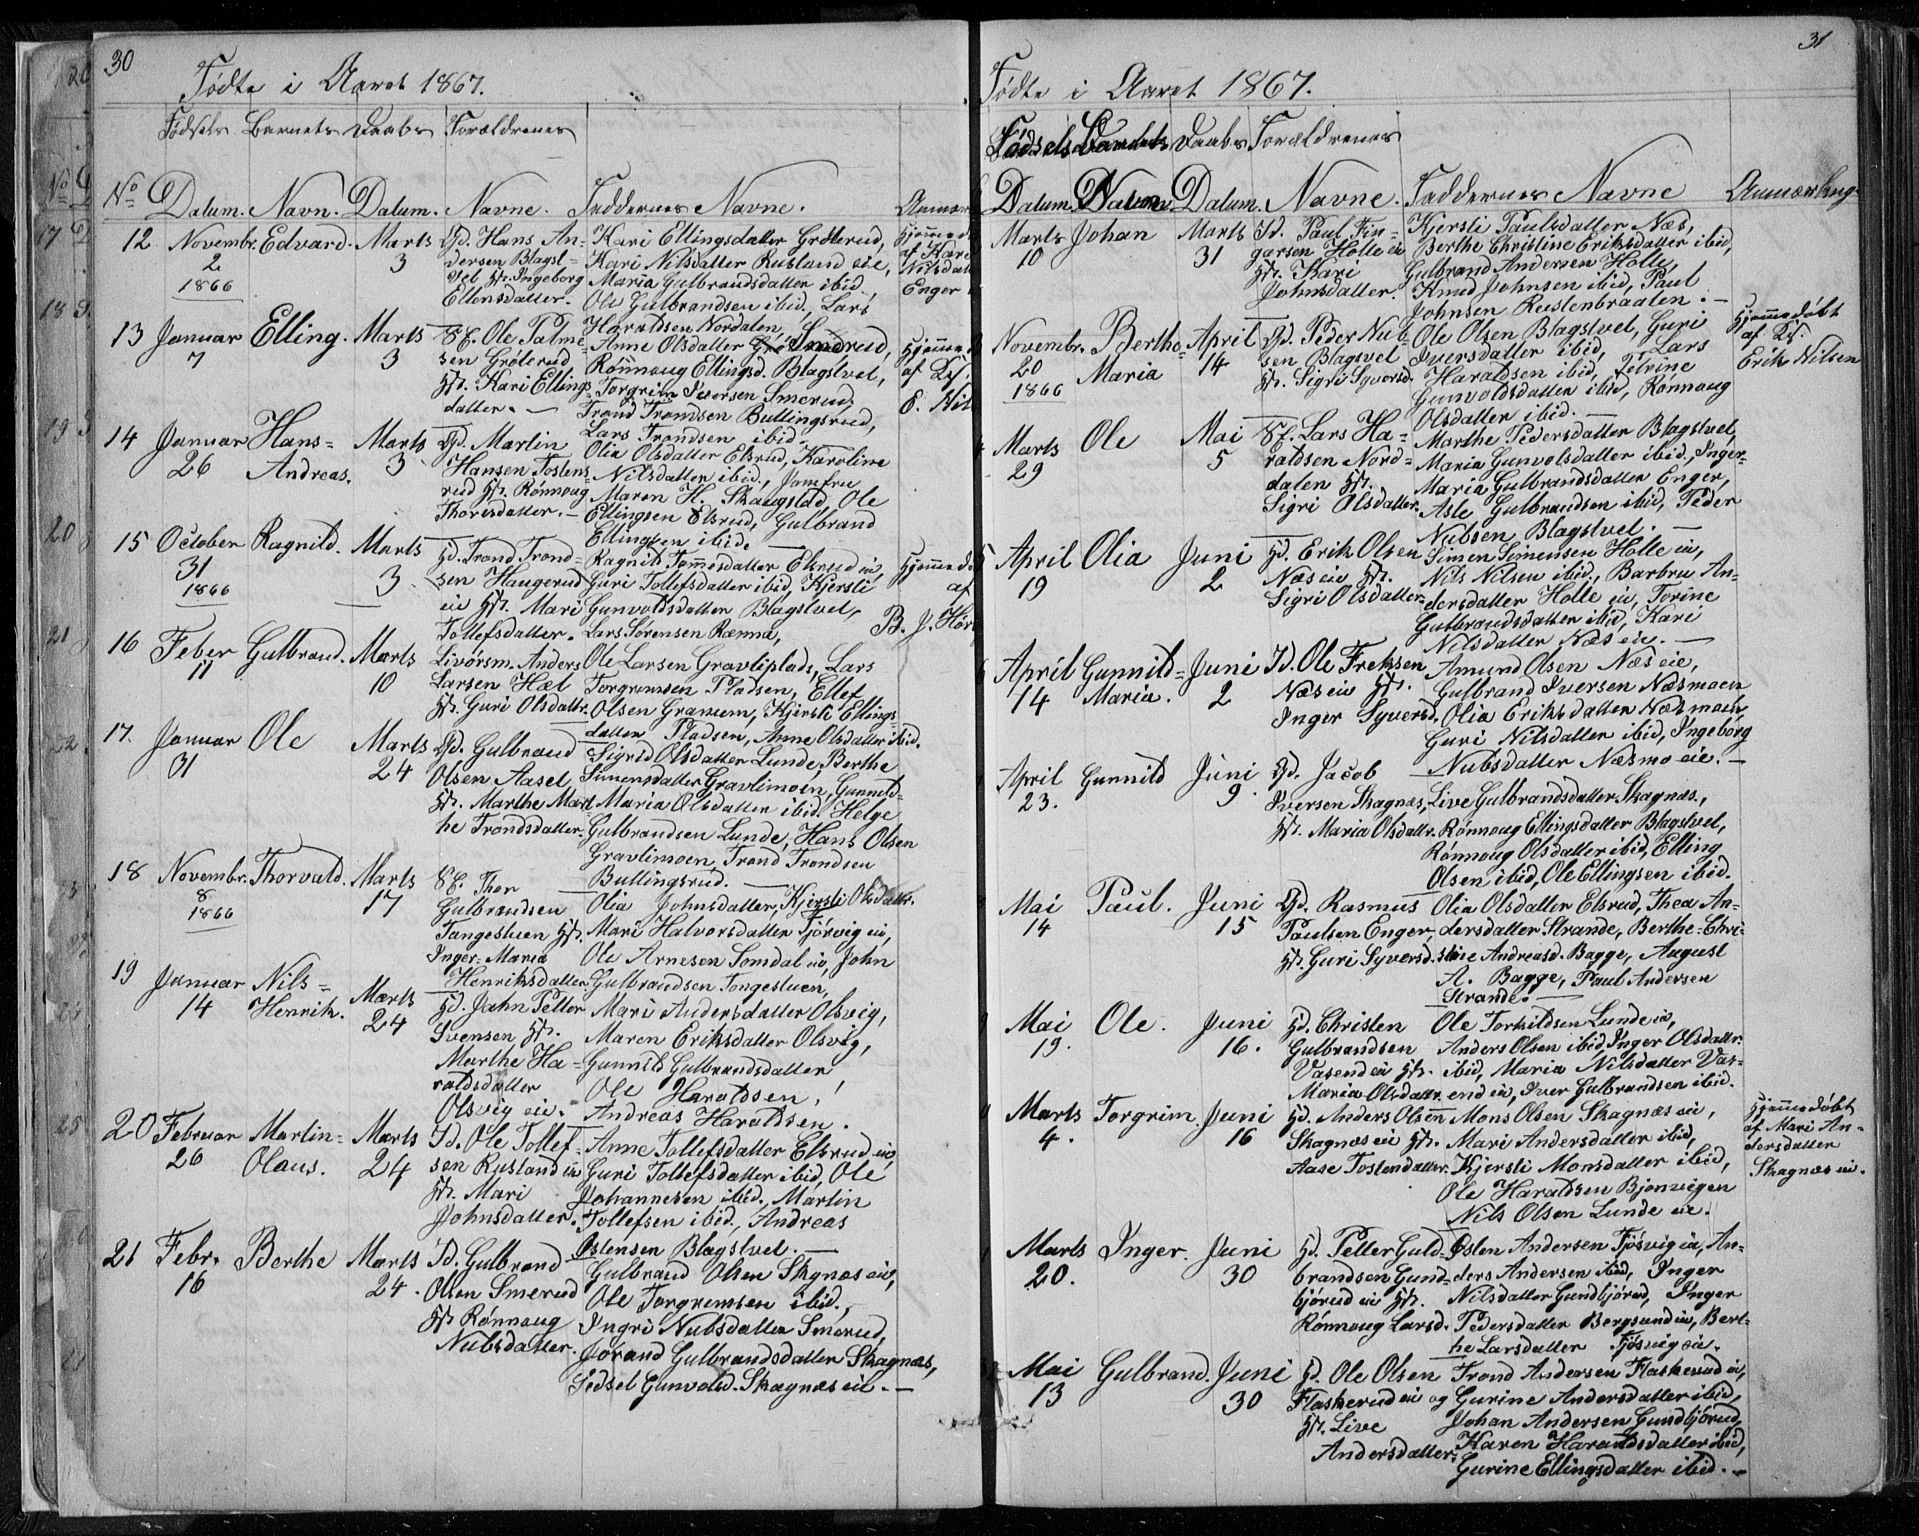 30
Födte i Aaret 1867.
Födsels Barnets Daabs Forældrenes
No Datum. Navn. Datum. Navne. Faddernes Navne. Anmær
12 Novembr. 2 1866 Edvard. Marts 3
Gd. Hans An-
dersen Blagst-
vet Hst. Ingeborg
Ellensdatter.
Kari Ellingsdatter Gröterud,
Kari Nilsdatter Rusland eie,
Maria Gulbrandsdatter ibid.
Ole Gulbrandsen ibid., Lars
Haraldsen Nordalen,
Hjemmed
af Kari
Nilsdatt
Enger
13 Januar 7 Elling. Marts 3
Sf. Ole Palme-
sen Gröterud
Hst. Kari Ellings-
datter.
Anne Olsdatter Smerud,
Rönnoug Ellingsd. Blagstvet,
Torgrim Iversen Smerud,
Trond Trondsen Bullingsrud,
Lars Trondsen ibid.
Hjemmed
af Ksf.
E. Nil
14 Januar 26 Hans-Andreas. Marts 3
Gd. Martin
Hansen Tostens-
rud Hst. Rönnoug
Thorisdatter.
Olia Olsdatter Elsrud, Karoline
Nilsdatter ibid., Jomfru
Maren H. Skaugstad, Ole
Ellingsen Elsrud, Gulbrand
Ellingsen ibid.
15 October 31 1866 Ragnild. Marts 3
Hd. Trond Trond-
sen Haugerud
eie Hst. Mari
Tollefsdatter.
Ragnild Tommesdatter Elsrud eie
Guri Tollefsdatter ibid, Kjersti
Gunvoldsdatter Blagstvet,
Lars Sörensen Ramna,
Hjemmed
af
B. J. Hör
16 Feber 11 Gulbrand. Marts 10
Livörsm. Anders
Larsen Hæl
Hst. Guri Olsdatt.
Ole Larsen Gravliplads, Lars
Torgrimsen Pladsen, Ellef
Olsen Granum, Kjersti Ellings-
datter Pladsen, Anne Olsdatter ibid.
17. Januar 31 Ole Marts 24
Gd. Gulbrand
Olsen Aasel
Hst. Marthe Mart-
he Trondsdatter.
Sigrid Olsdatter Lunde, Berthe
Simensdatter Gravlimoen, Gunnild-
Maria Olsdatter ibid. Helge
Gulbrandsen Lunde, Hans Olsen
Gravlimoen, Trond Trondsen
Bullingsrud.
18 Novembr. 8 1866 Thorvald. Marts 17
Sf. Thor
Gulbrandsen
Tangestuen Hst.
Inger-Maria
Henriksdatter
Olia Johnsdatter, Kjersti Olsdatter.
Mari Halvorsdatter Tjörvig eie,
Ole Arnesen Somdal eie, John
Gulbrandsen Tongestuen,
19 Januar 14 Nils-Henrik. Marts 24
Hd. John Petter
Svensen Hst.
Marthe Ha-
raldsdatter
Olsvig eie.
Mari Andersdatter Olsvig,
Maren Eriksdatter Olsvig,
Gunnild Gulbrandsdatter
Ole Haraldsen,
Andreas Haraldsen.
20 Februar 26 Martin-Olaus. Marts 24
Id. Ole Tollef-
sen Rusland eie
Hst. Mari
Johnsdatter.
Anne Tollefsdatter Elsrud eie
Guri Tollefsdatter ibid, Ole
Johannesen ibid., Martin
Tollefsen ibid., Andreas
Ostensen Blagstvet.
21 Febr. 16 Berthe Marts 24.
Id. Gulbrand
Olsen Smerud
Hst. Rönnoug
Nubsdatter.
Gulbrand Olsen Skagnæs eie,
Ole Torgremsen ibid.,
Ingri Nubsdatter Smerud,
Jorand Gulbrandsdatter Skagnæs,
Sidsel Gunvoldsd. Skagnæs eie.
31
Födte i Aaret 1867.
Födsels Barnets Daabs Forældrenes
Datum. Navn Datum. Navne. Faddernes Navne Anmærkning
Marts 10 Johan Marts 31
Id. Paul Fin-
garsen Holle eie
Hst. Kari
Johnsdatter.
Kjersti Paulsdatter Næs,
Berthe Christine Eriksdatter ibid,
Gulbrand Andersen Holle,
Knud Johnsen ibid, Paul
Johnsen Rustenbraaten.
Novembr. 20 1866 Berthe-Maria April 14
Gd. Peder Nub-
sen Blagsvet
Hst. Sigri Syversd.
Ole Olsen Blagstvet, Guri
Iversdatter ibid, Lars
Haraldsen ibid, Petrine
Gunvoldsdatter ibid, Rönnoug
Olsdatter ibid.
Hjemmedöbt
af Ksf.
Erik Nilsen
Marts 29 Ole Mai 5
Sf. Lars Ha-
raldsen Nord-
dalen Hst.
Sigri Olsdatter.
Marthe Pedersdatter Blagstvet,
Maria Gunvolsdatter ibid., Inger-
Maria Gulbrandsdatter Enger,
Asle Gulbrandsen ibid, Peder
Nubsen Blagstvet.
April 19 Olia Juni 2
Hd. Erik Olsen
Næs eie Hst.
Sigri Olsdatter.
Simen Simensen Holle eie,
Nils Nilsen ibid., Barbru An-
dersdatter Holle eie, Torine
Gulbrandsdatter ibid, Kari
Nilsdatter Næs eie.
April 14 Gunnild-Maria. Juni 2
Id. Ole Freksen
Næs eie Hst.
Inger Syversd.
Amund Olsen Næs eie,
Gulbrand Iversen Næsmoen,
Olia Eriksdatter Næsmoen,
Guri Nilsdatter ibid, Ingeborg
Nubsdatter Næsmo eie.
April 23. Gunnild Juni 9.
Gd. Jacob
Iversen Skagnæs,
Hst. Maria Olsdattr.
Live Gulbrandsdatter Skagnæs,
Rönnoug Ellingsdatter Blagstvet,
Rönnoug Olsdatter ibid, Elling
Olsen ibid, Ole Ellingsen ibid.
Mai 14 Paul. Juni 15
Gd. Rasmus
Paulsen Enger,
Hst. Guri Syversd.
Olia Olsdatter Elsrud, Thea An-
dersdatter Strande, Berthe-Chri-
stine Andreasd. Bagge, August
A. Bagge, Paul Andersen
Strande.
Mai 19. Ole. Juni 16.
Hd. Christen
Gulbrandsen
Vasend eie Hst.
Maria Olsdattr.
Ole Torkildsen Lunde eie,
Anders Olsen ibid, Inger Olsdattr.
ibid, Maria Nilsdatter Vas-
end eie, Iver Gulbrandsen ibid.
Marts 4. Torgrim. Juni 16
Hd. Anders Olsen
Skagnæs eie Hst.
Aase Tostendatter.
Mons Olsen Skagnæs eie,
Mari Andersdatter ibid,
Kjersti Monsdatter ibid,
Ole Haraldsen Bjonvigen
Nils Olsen Lunde eie.
Hjemmedöbt
af Mari An-
dersdatter
Skagnæs eie.
Marts 20. Inger. Juni 30
Hd. Petter Guld-
brandsen Gund-
björud eie Hst.
Rönnoug Larsd.
Östen Andersen Tjösvig eie, An-
ders Andersen ibid, Inger
Nilsdatter Gundbjörud, Inger
Pedersdatter Bergsund eie, Bert-
he Larsdatter Tjösvig eie.
Mai 13 Gulbrand. Juni 30
Hd. Ole Olsen
Flaskerud eie og
Hst. Live
Andersdatter.
Trond Andersen Flaskerud eie,
Gurine Andersdatter ibid,
Johan Andersen Gundbjörud,
Karen Haraldsdatter ibid,
Gurine Ellingsdatter ibid.